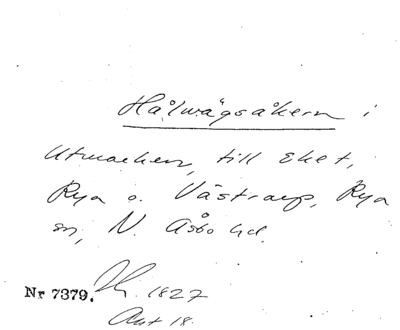 Hålwägsåkern i
Utmarken, till Eket,
Rya o. Västraup, Rya
sn, N. Åsbo hd.
Nr 7379. 1827
Akt 18.